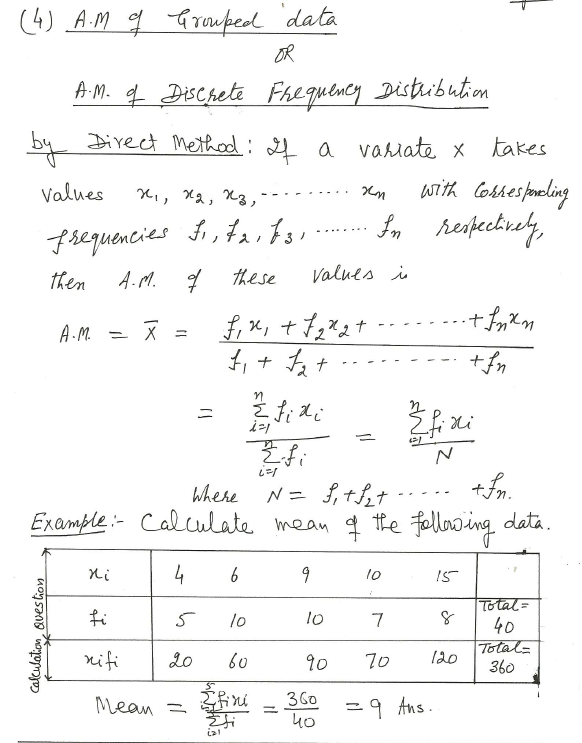 (4) A.M of Grouped data
OR
A.M. of Discrete Frequency Distribution
by Direct Method: If a variate x takes
values x₁, x₂, x₃, --------- xn with Corresponding
frequencies f₁, f₂, f₃, ........ fn respectively,
then A.M. of these values is
A.M. = X̄ = f₁x₁ + f₂x₂ + --------- + fnxn / f₁ + f₂ + --------- + fn
= ⁿΣi=1 fixi / ⁿΣi=1 fi = ⁿΣi=1 fixi / N
Where N = f₁+f₂+ ------ +fn.
Example:- Calculate mean of the following data.
Question
xi 4 6 9 10 15
fi 5 10 10 7 8 Total= 40
Calculation
xifi 20 60 90 70 120 Total= 360
Mean = ⁵Σi=1 fixi / ⁵Σi=1 fi = 360/40 = 9 Ans.